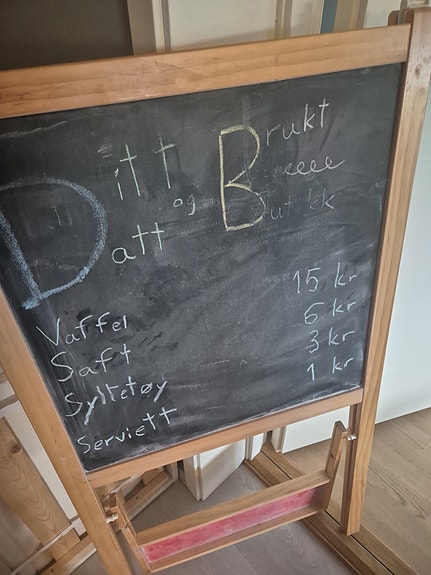 Ditt Brukt
og B
Datt Butikk
Vaffel 15 kr
Saft 6 kr
Syltetøy 3 kr
Serviett 1 kr